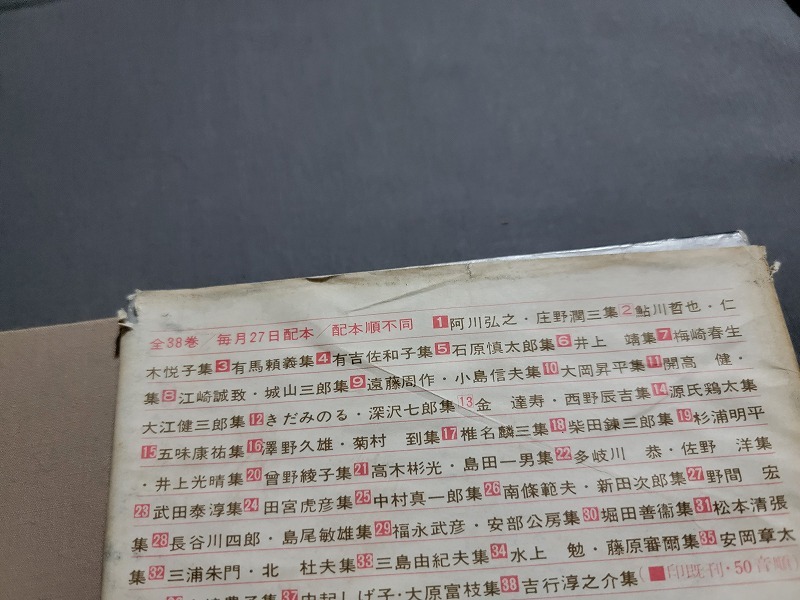 全38巻／毎月27日配本／配本順不同 1阿川弘之・庄野潤三集2鮎川哲也・仁
木悦子集3有馬頼義集4有吉佐和子集5石原慎太郎集6井上 靖集7梅崎春生
集8江崎誠致・城山三郎集9遠藤周作・小島信夫集10大岡昇平集11開高 健・
大江健三郎集12きだみのる・深沢七郎集13金 達寿・西野辰吉集14源氏鶏太集
15五味康祐集16澤野久雄・菊村 到集17椎名麟三集18柴田錬三郎集19杉浦明平
・井上光晴集20曾野綾子集21高木彬光・島田一男集22多岐川 恭・佐野 洋集
23武田泰淳集24田宮虎彦集25中村真一郎集26南條範夫・新田次郎集27野間 宏
集28長谷川四郎・島尾敏雄集29福永武彦・安部公房集30堀田善衞集31松本清張
集32三浦朱門・北 杜夫集33三島由紀夫集34水上 勉・藤原審爾集35安岡章太
子集37由起しげ子・大原富枝集38吉行淳之介集(■印既刊・50音順)